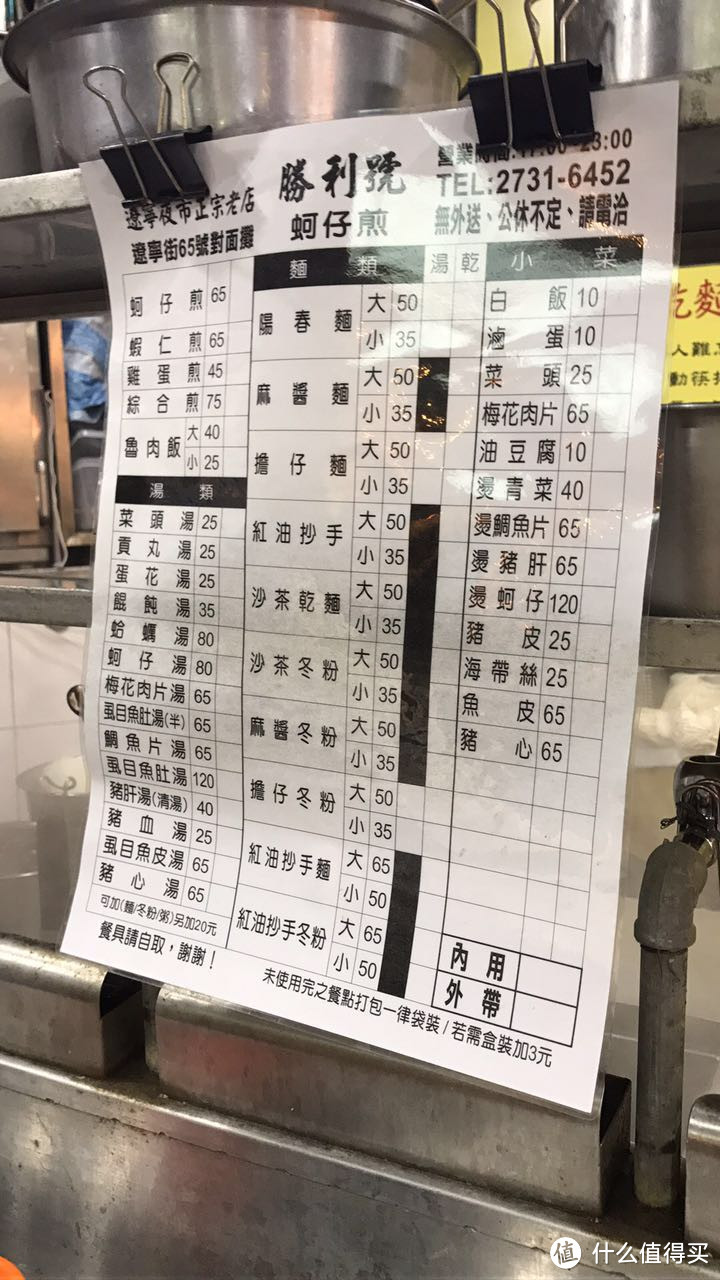 遼寧夜市正宗老店
遼寧街65號對面攤
勝利號
蚵仔煎
營業時間:17:00-23:00
TEL:2731-6452
無外送、公休不定、請電洽
蚵仔煎 65
蝦仁煎 65
雞蛋煎 45
綜合煎 75
魯肉飯 大 40
小 25
湯類
菜頭湯 25
貢丸湯 25
蛋花湯 25
餛飩湯 35
蛤蠣湯 80
蚵仔湯 80
梅花肉片湯 65
虱目魚肚湯(半) 65
鯛魚片湯 65
虱目魚肚湯 120
豬肝湯(清湯) 40
豬血湯 25
虱目魚皮湯 65
豬心湯 65
可加(麵/冬粉/粥)另加20元
餐具請自取，謝謝！
麵類 湯 乾
陽春麵 大 50
小 35
麻醬麵 大 50
小 35
擔仔麵 大 50
小 35
紅油抄手 大 50
小 35
沙茶乾麵 大 50
小 35
沙茶冬粉 大 50
小 35
麻醬冬粉 大 50
小 35
擔仔冬粉 大 50
小 35
紅油抄手麵 大 65
小 50
紅油抄手冬粉 大 65
小 50
小菜
白飯 10
滷蛋 10
菜頭 25
梅花肉片 65
油豆腐 10
燙青菜 40
燙鯛魚片 65
燙豬肝 65
燙蚵仔 120
豬皮 25
海帶絲 25
魚皮 65
豬心 65
內用
外帶
未使用完之餐點打包一律袋裝/若需盒裝加3元
乾麵
人難
動筷
值 什么值得买